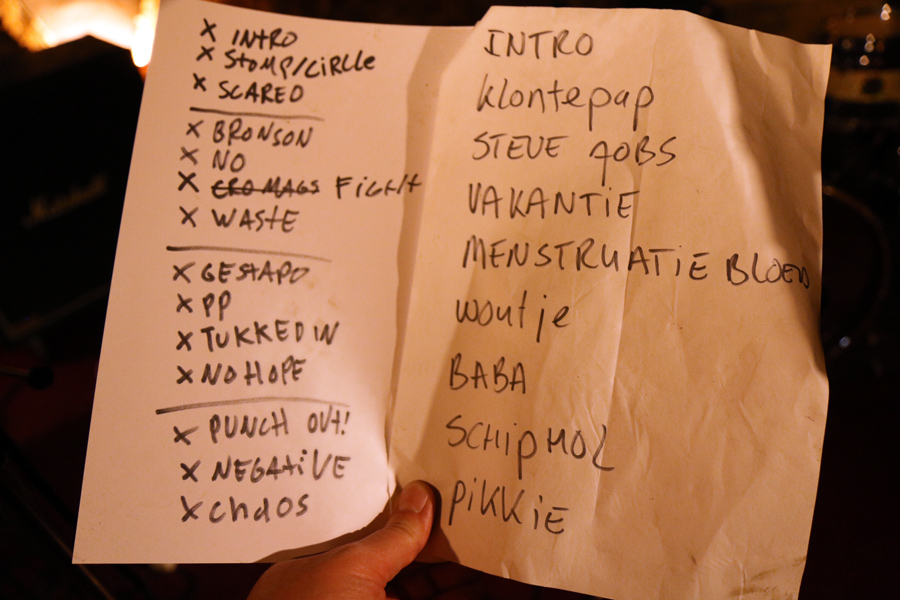 × INTRO
× STOMP/CiRCLE
× SCARED
× BRONSON
× NO
× CRO MAGS FIGHT
× WASTE
× GESTAPO
× PP
× TUKKED IN
× NO HOPE
× PUNCH OUT!
× NEGATiVE
× chaos
INTRO
klontepap
STEVE JOBS
VAKANTiE
MENSTRUATiE BLOED
woutje
BABA
SCHipHOL
PiKKiE
Marshall